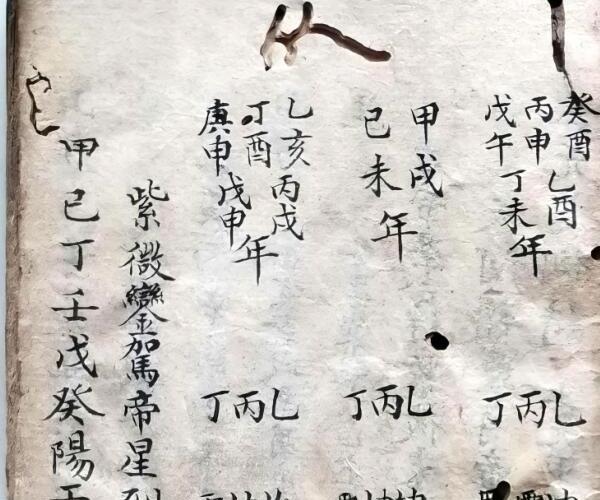 癸酉 乙酉
丙申 丁未年
戊午
乙丙丁
甲戌
己未年
乙丙丁
乙亥 丙戌
丁酉 年
庚申 戊申
乙丙丁
紫微鑾駕帝星到
甲己丁壬戊癸陽